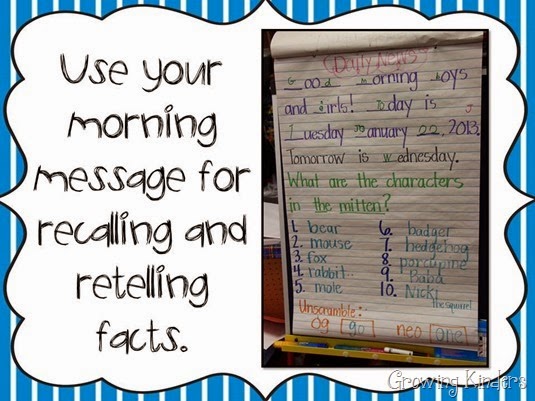 Use your
morning
message for
recalling and
retelling
facts.
Daily News
Good morning boys
and girls! Today is
Tuesday January 22, 2013.
Tomorrow is wednesday.
What are the characters
in the mitten?
1. bear
2. mouse
3. fox
4. rabbit..
5. mole
6. badger
7. hedgehog
8. porcupine
9. Baba
10. Nicki
the squirrel
Unscramble:
og [go] neo [one]
Growing Kinders